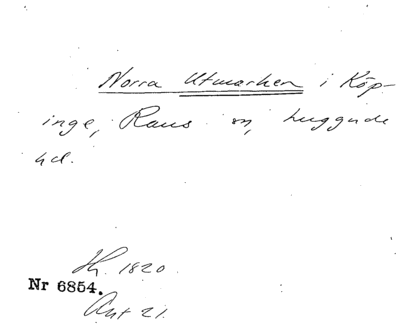 Norra Utmarken i Köp-
inge, Raus sn, Luggude
hd.
Lh. 1820.
Nr 6854.
Akt 21.